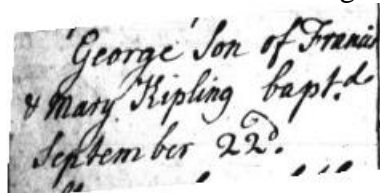 George Son of Francis
& Mary Kipling bapt.d
September 22d.